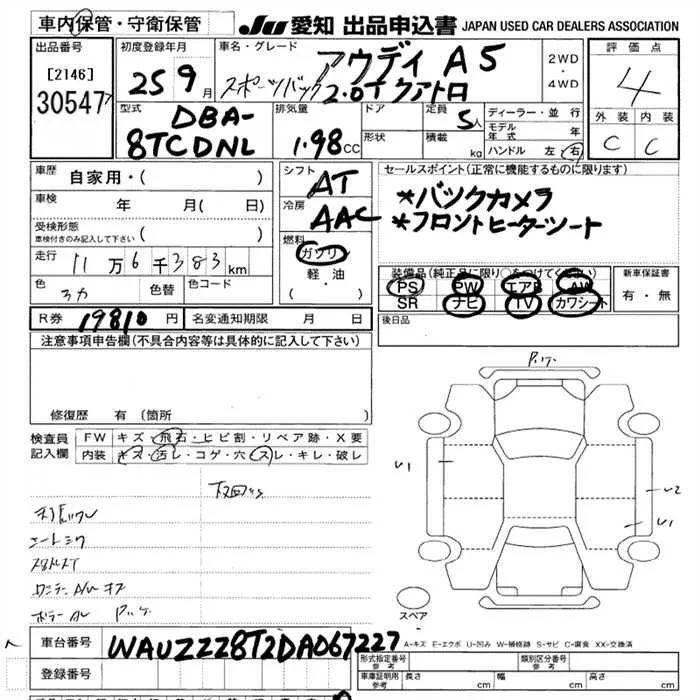 車内保管・守衛保管 JU 愛知 出品申込書 JAPAN USED CAR DEALERS ASSOCIATION
出品番号 初度登録年月 車名・グレード 評価点
[2146] 25年9月 アウディ A5 2WD・4WD 4
30547 スポーツバック 2.0T クアトロ
型式 排気量 ドア 定員 ディーラー・並行 外装 内装
DBA- 5人 モデル年式 年 C C
8TCDNL 1.98cc 形状 積載 kg ハンドル 左 右
車歴 自家用・( ) シフト AT セールスポイント(正常に機能するものに限ります)
車検 年 月(日) 冷房 AAC *バックカメラ
受検形態 ( ) *フロントヒーターシート
車検付きのみ記入して下さい
走行 11万6千383km 燃料 ガソリン 軽油 ( ・ )
色 色替 色コード 装備品(純正品に限り○をつけてください) 新車保証書
PS PW エアB AW 有・無
SR ナビ TV カワシート
R券 19810円 名変通知期限 月 日 後日品
注意事項申告欄(不具合内容等は具体的に記入して下さい)
修復歴 有 (箇所 )
検査員記入欄 FW キズ・飛石・ヒビ割・リペア跡・X要
内装 キズ・汚レ・コゲ・穴・スレ・キレ・破レ
U1
U2
U1
スペア
車台番号 WAUZZZ8T2DA067227
A-キズ E-エクボ U-凹み W-補修跡 S-サビ C-腐食 XX-交換済
登録番号 形式指定番号 参考 類別区分番号 参考
車庫証明用 参考 長さ cm 幅 cm 高さ cm